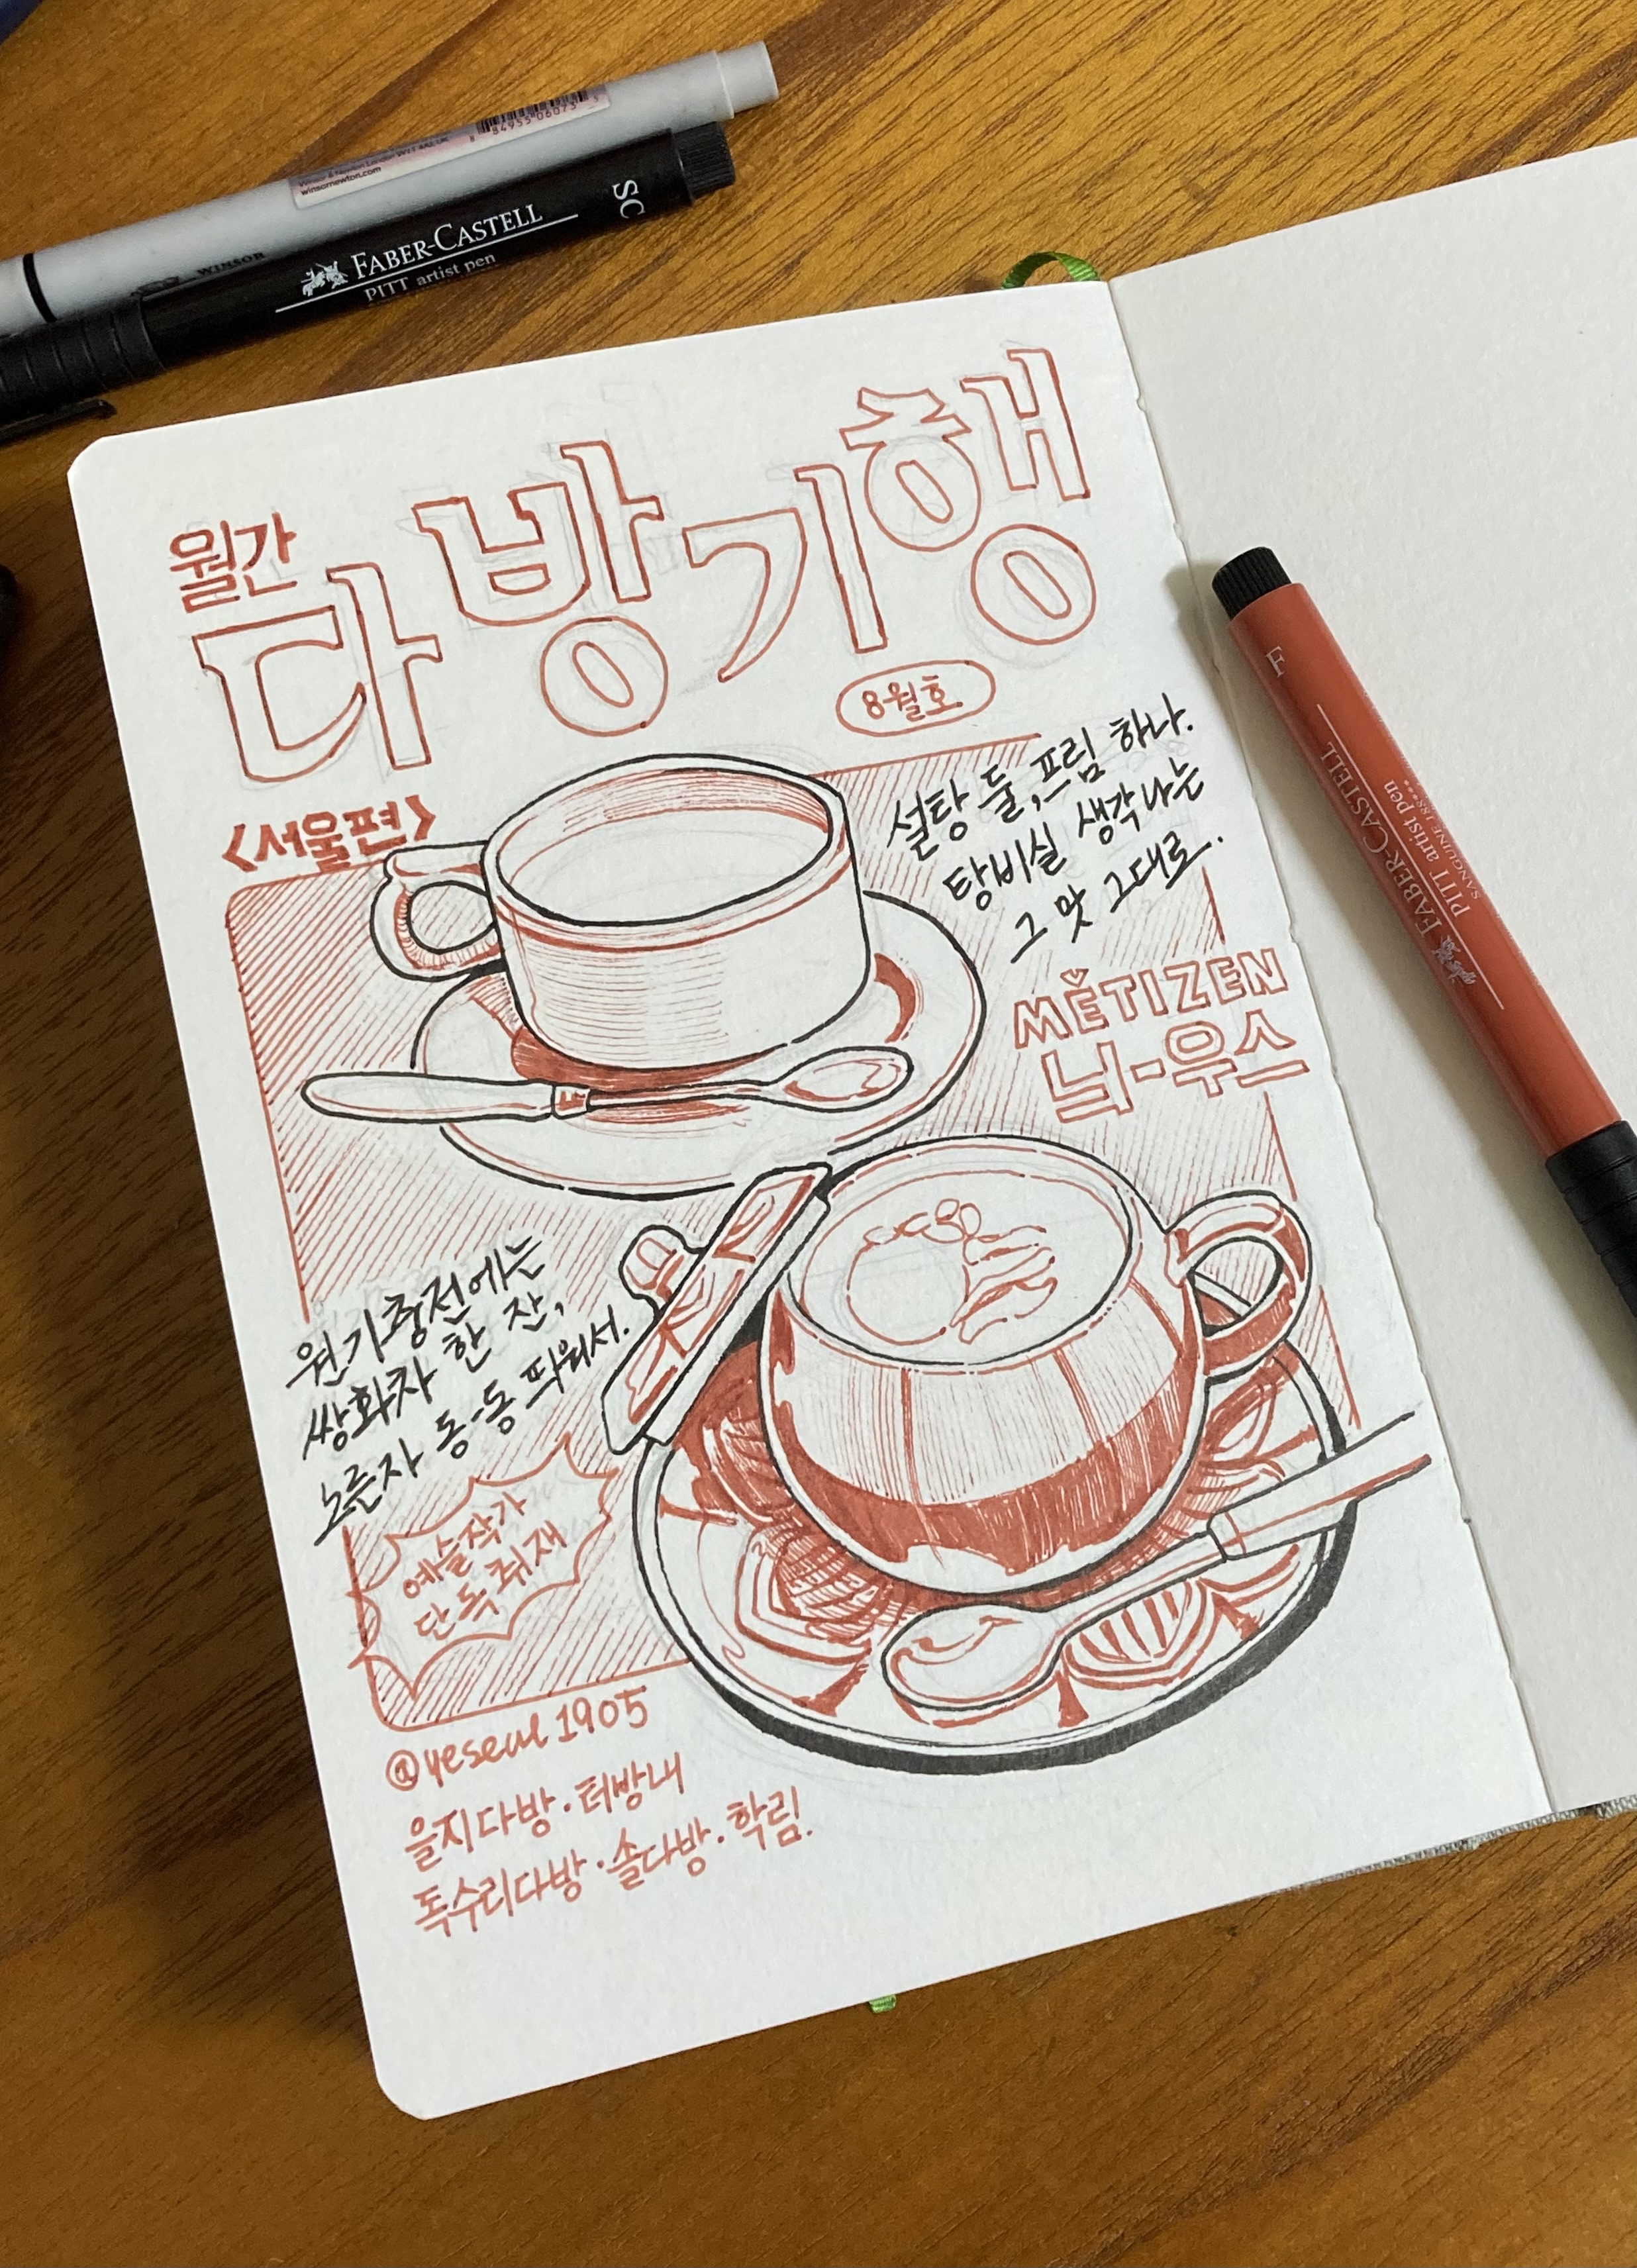 8 84955 06073 3
Winsor & Newton London W11 4AZ, UK
winsornewton.com
WINSOR
FABER-CASTELL
PITT artist pen
SC
월간
다방기행
8월호
<서울편>
설탕 둘, 프림 하나.
탕비실 생각나는
그 맛 그대로.
MĚTIZEN
늬-우스
원기충전에는
쌍화차 한 잔,
노른자 동-동 띄워서.
예슬작가
단독취재
@yeseul1905
을지다방·터방내
독수리다방·솔다방·학림.
F
FABER-CASTELL
PITT artist pen
SANGUINE 188***